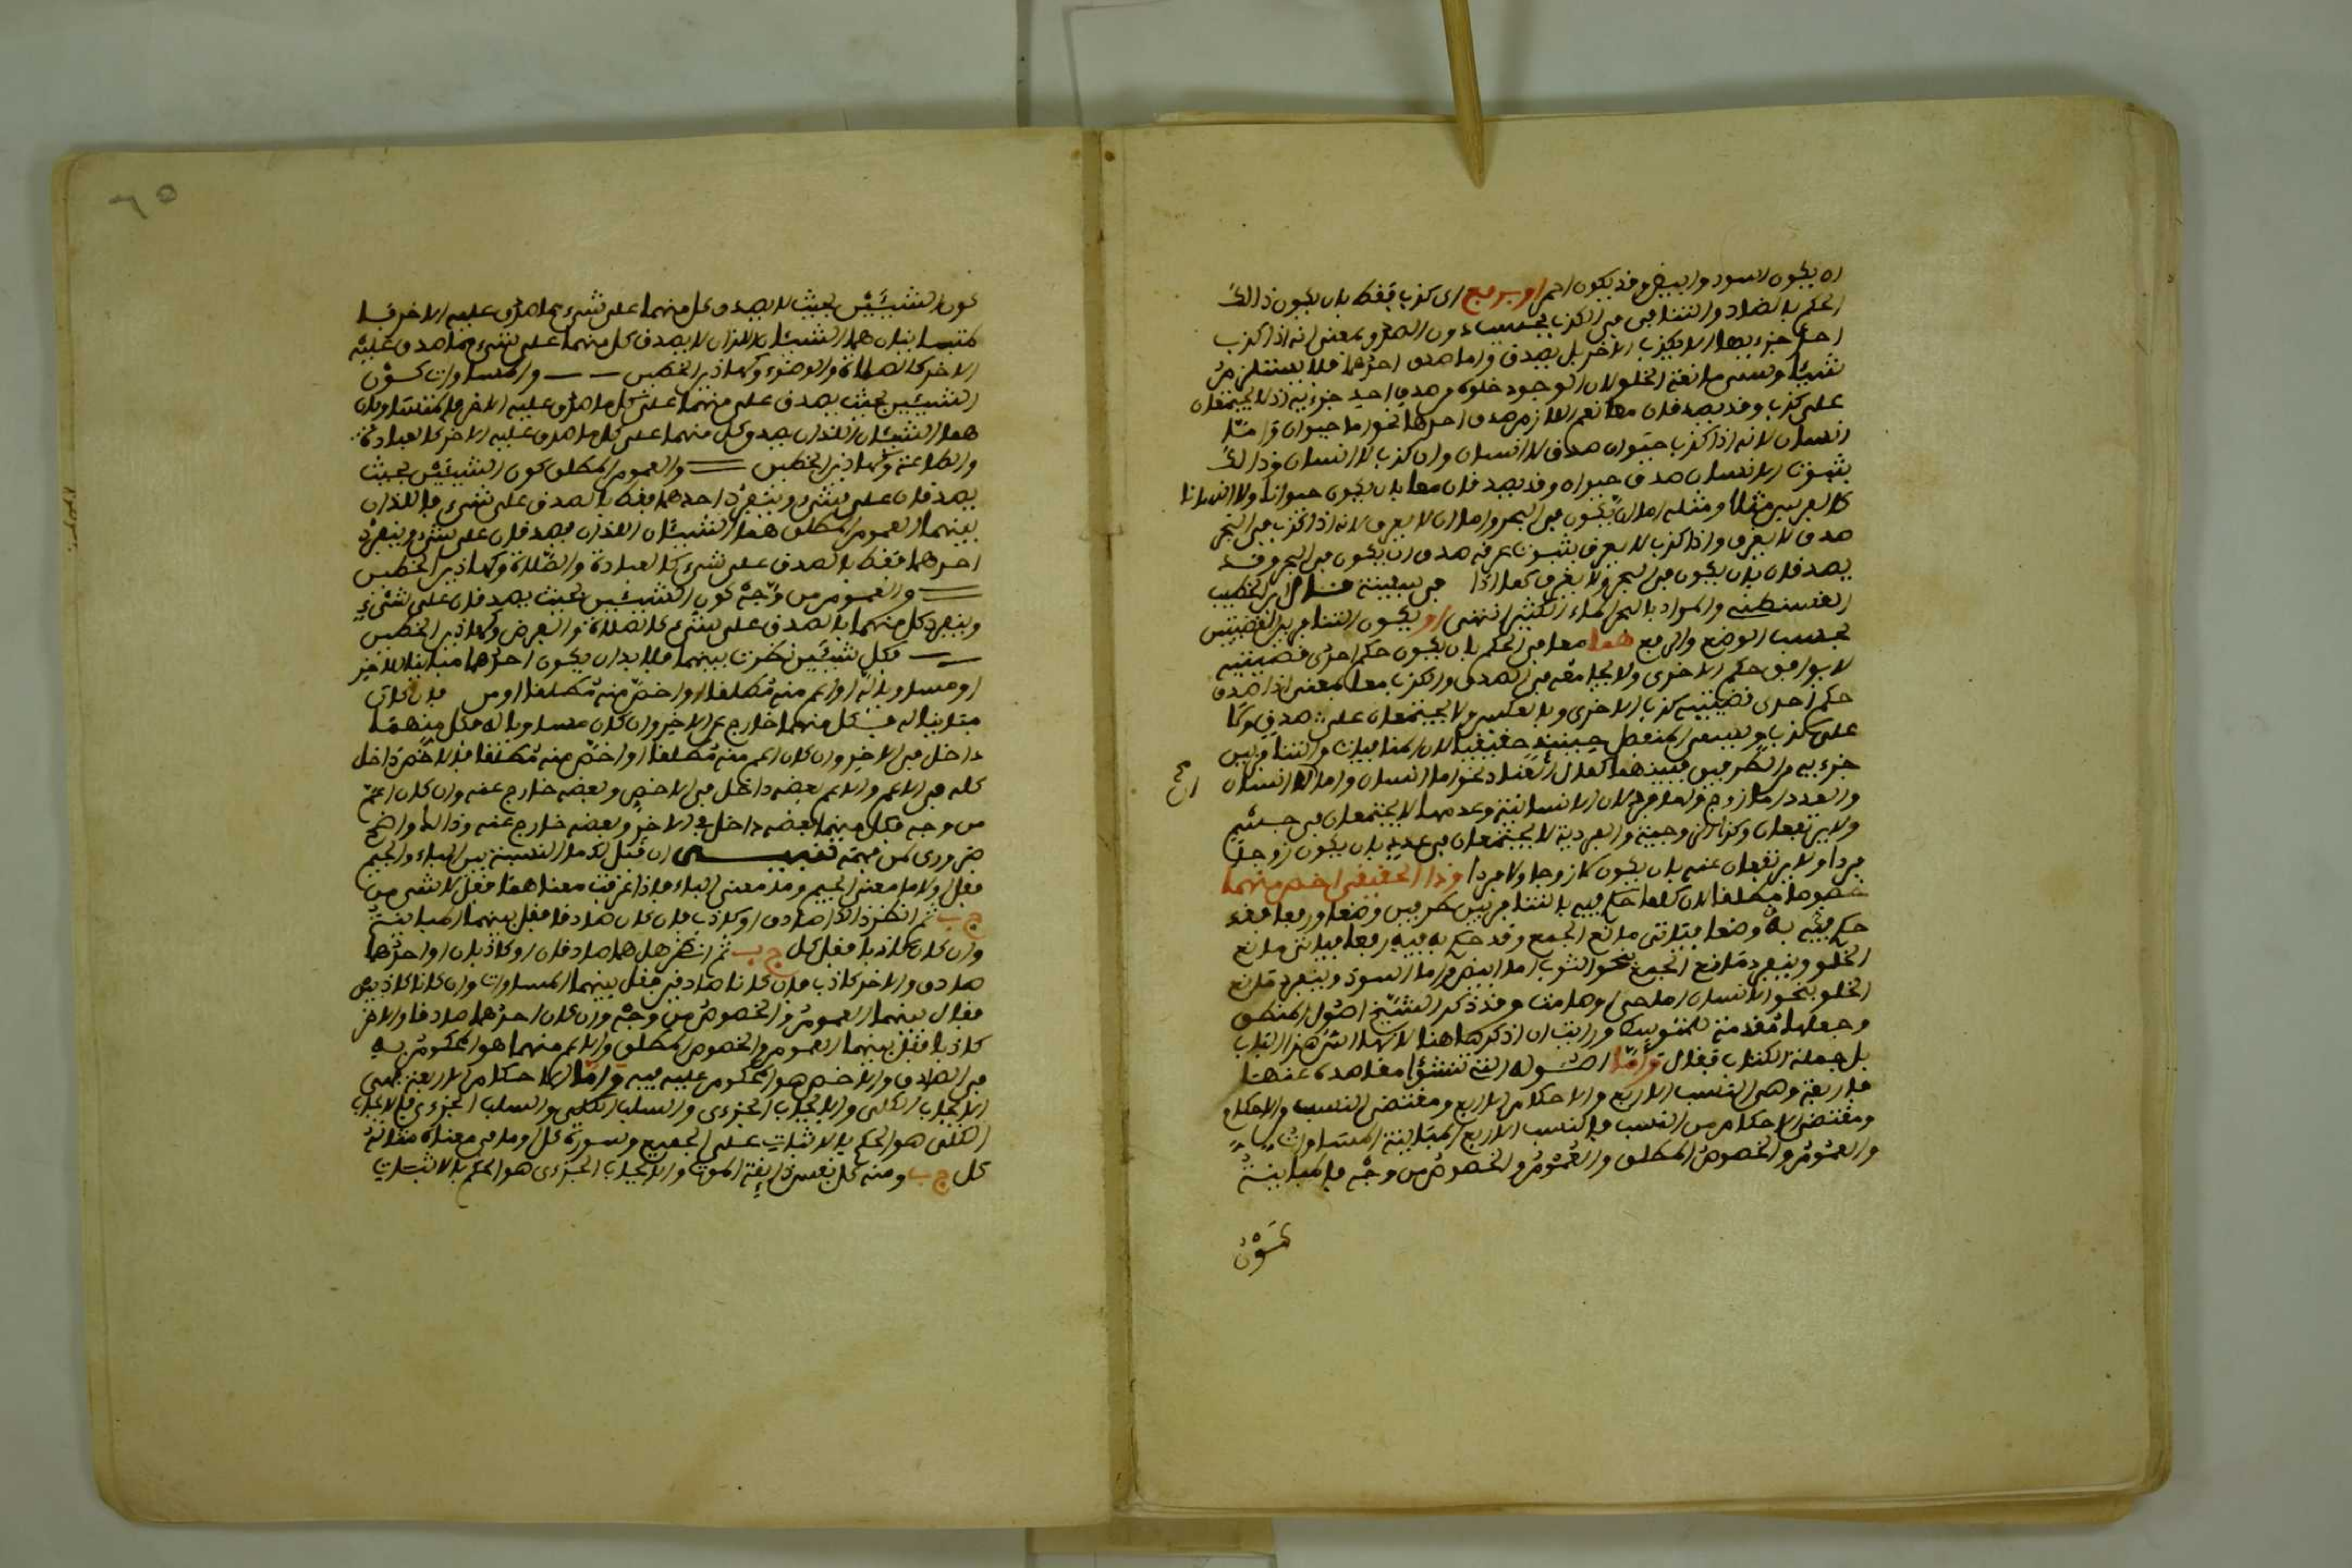 ان يكون اسود وابيض وقد يكون احمر او برفع اى كذب فقط بان يكون ذالك
الحكم بالعناد والتنافى فى الكذب بحسب دون الصدق بمعنى انه اذا كذب
احد جزءيها لا يكذب الاخر بل يصدق واما صدق احدهما فلا يستلزم
شيئا وتسمى مانعة الخلو لان الوجود خلوه من صدق احد جزءيه اذ لا يجتمعان
على كذب وقد يصدقان معا نعم اللازم صدق احدهما نحو اما حيوان واما
انسان لانه اذا كذب حيوان صدق لا انسان وان كذب لا انسان وذالك
بثبوت الانسان صدق حيوان وقد يصدقان معا بان يكون حيوانا ولا انسانا
كالفرس مثلا ومثله اما ان يكون فى البحر واما ان لا يغرق لانه اذا كذب فى البحر
صدق لا يغرق واذا كذب لا يغرق بثبوت غرقه صدق ان يكون فى البحر وقد
يصدقان بان يكون فى البحر ولا يغرق كما اذا فى سفينة قال ابن الخطيب
القسنطينى والمراد بالبحر الماء الكثير انتهى او يكون التنافر بين القضيتين
بحسب الوضع والرفع هما معا فى الحكم بان يكون حكم احدى قضيتيه
لا يوافق حكم الاخرى ولا يجامعه فى الصدق والكذب معا بمعنى اذا صدق
حكم احدى قضيتيه كذب الاخرى وبالعكس ولا يجتمعان على صدق ولا
على كذب ويسمى المنفصل حينئذ حقيقيا لان المنافات والتنافر بين
جزءيه والطرفين فيهما كمال العناد نحو اما انسان واما لا انسان
والعدد اما زوج واما فرد لان الانسانية وعدمها لا يجتمعان فى جسم
ولا يرتفعان وكذا الزوجية والفردية لا يجتمعان فى عدد بان يكون زوجا
فردا ولا يرتفعان عنه بان يكون لا زوجا ولا فردا وذا الحقيقى اخص منهما
خصوصا مطلقا لان كلما حكم فيه بالتنافر بين طرفين وضعا ورفعا فقد
حكم فيه به وضعا فيتاتى مانع الجمع وقد حكم به فيه رفعا فياتى مانع
الخلو وينفرد مانع الجمع بنحو الثوب اما ابيض واما اسود وينفرد مانع
الخلو بنحو الانسان اما حى واما ميت وقد ذكر الشيخ اصول المنطق
وجعلها مقدمة للتنويسات ورايت ان اذكرها هنا لانها اس هذا الباب
بل جملة الكتاب فقال واما اصوله التى تنشؤا مقاصده عنها
فاربعة وهى النسب الاربع والاحكام الاربع ومقتضى النسب والاحكام
ومقتضى الاحكام من النسب فالنسب الاربع المباينة المساوات
والعموم والخصوص المطلق والعموم والخصوص من وجه فالمباينة
كون
كون الشيئين بحيث لا يصدق كل منهما على شىء مما صدق عليه الاخر فا
لمتباينان هما الشيئان اللذان لا يصدق كل منهما على شىء مما صدق عليه
الاخر كالصلاة والوضوء وكماذير الخطين والمساوات كون
الشيئين بحيث يصدق كل منهما على كل ما صدق عليه الاخر فالمتساويان
هما الشيئان اللذان يصدق كل منهما على كل ما صدق عليه الاخر كالعبادة
والطاعة وكماذين الخطين والعموم المطلق كون الشيئين بحيث
يصدقان على شىء وينفرد احدهما فقط بالصدق على شىء فاللذان
بينهما العموم المطلق هما الشيئان اللذان يصدقان على شىء وينفرد
احدهما فقط بالصدق على شىء كالعبادة والصلاة وكماذين الخطين
والعموم من وجه كون الشيئين بحيث يصدقان على شىء
وينفرد كل منهما بالصدق على شىء كالصلاة والفرض وكماذين الخطين
فكل شيئين نظرت بينهما فلا بد ان يكون احدهما مباينا للاخر
او مساويا له او اعم منه مطلقا او اخص منه مطلقا او من فان كان
مباينا له فـكل منهما خارج عن الاخر وان كان مساويا له فكل منهما
داخل فى الاخر وان كان اعم منه مطلقا او اخص منه مطلقا فالاخص داخل
كله فى الاعم والاعم بعضه داخل فى الاخص وبعضه خارج عنه وان كان اعم
من وجه فكل منهما بعضه داخل فى الاخر وبعضه خارج عنه وذالك واضح
ضرورى لمن فهمه تنبيـــه ان قيل لك ما النسبة بين الباء والجيم
فقل اولا ما معنى الجيم وما معنى الباء فاذا عرفت معناهما فقل لا شىء من
ج ب ثم انظر ذالك اصادق او كاذب فان كان صادقا فقل بينهما المباينة
وان كان كاذبا فقل كل ج ب ثم انظر هل هما صادقان او كاذبان او احدهما
صادق والاخر كاذب فان كانا صادقين فقل بينهما المساوات وان كانا كاذبين
فقل بينهما العموم والخصوص من وجه وان كان احدهما صادقا والاخر
كاذبا فقل بينهما العموم والخصوص المطلق والاعم منهما هو المحكوم به
فى الصادق والاخص هو المحكوم عليه فيه واما الاحكام الاربعة فهى
الايجاب الكلى والايجاب الجزءى والسلب الكلى والسلب الجزءى فالايجاب
الكلى هو الحكم بالاثبات على الجميع وسوره كل وما فى معناه مثاله
كل ج ب ومنه كل نفس ذايقة الموت والايجاب الجزءى هو الحكم بالاثبات
٦٥